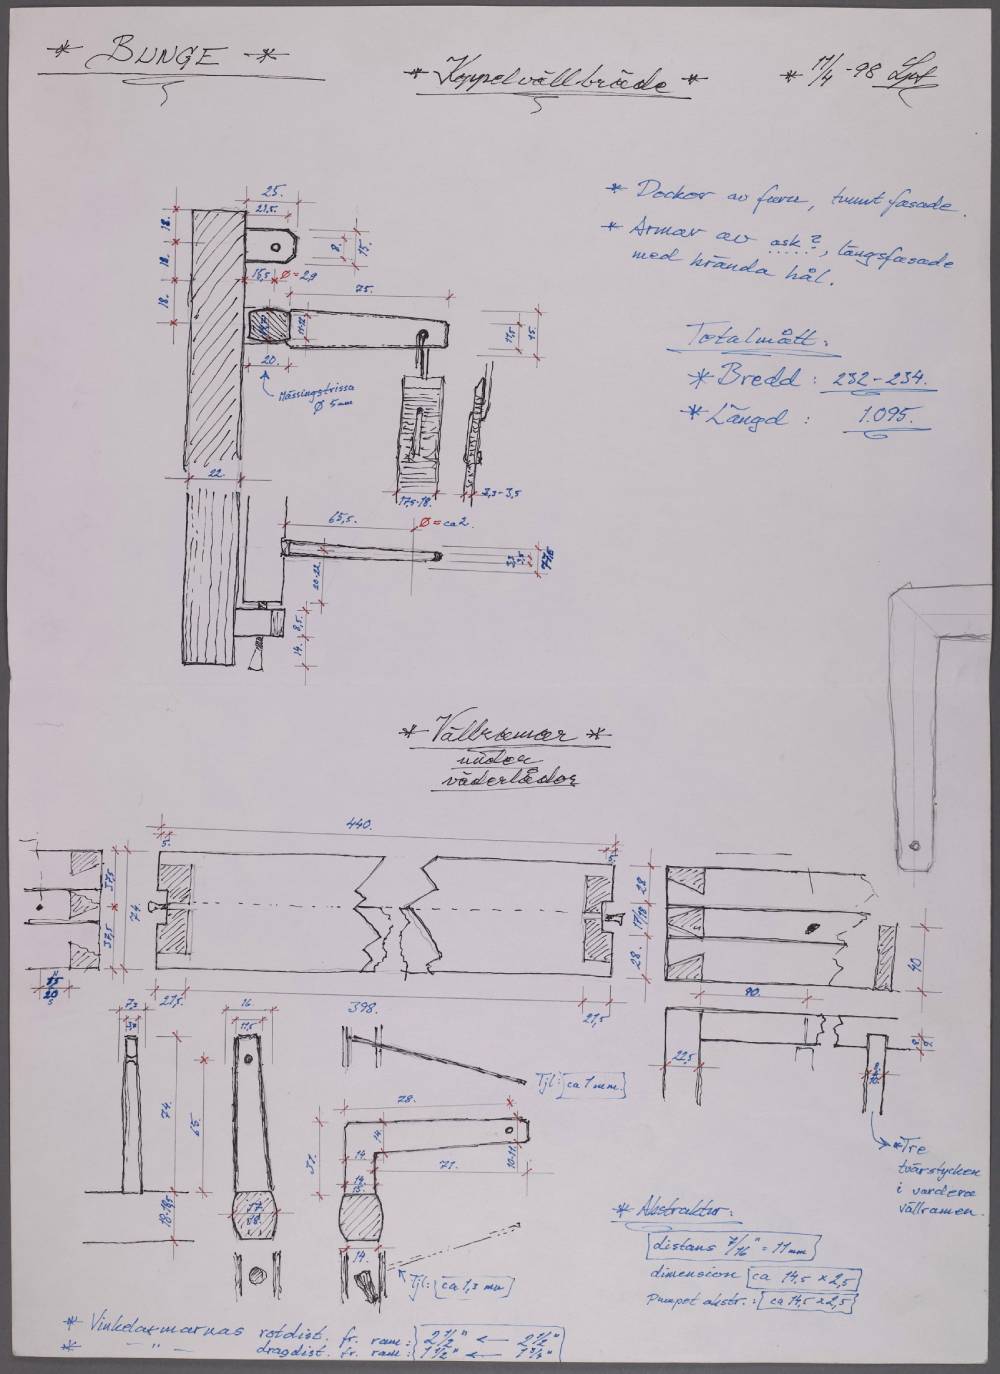 * BUNGE *
* Koppelvällbräde *
* 11/4 -98 Ljpt
* Dockor av furu, tunnt fasade.
* Armar av ask?, längsfasade
med brända hål.
Totalmått:
* Bredd : 232-234.
* Längd : 1.095.
25.
21,5.
18.
18.
18.
8.
15.
16,5
Ø=2,9
75.
11-12
17,5
15.
20.
Mässingstrissa
Ø 5 mm
22.
17,5-18.
3,3-3,5
65,5.
Ø=ca2.
20-22.
8,5.
14.
* Vällramar *
under
väderlådor
440.
5.
5.
37,5
37,5
74.
28
17/18
28.
40
20
21,5.
398.
21,5
90.
22,5
7,3
16.
11,5
74.
65.
18-18,5
Tjl: ca 1 mm.
78.
37.
14.
14.
71.
10-11.
14.
Tjl: ca 1,3 mm
* Tre
tvärstycken
i vardera
vällramen.
* Abstraktur:
distans 7/16" = 11 mm
dimension ca 14,5 x 2,5
Pumpet abstr.: ca 14,5 x 2,5
* Vinkelarmarnas rotdist. fr. ram: 2 1/2" ← 2 1/2"
* — " — dragdist. fr. ram: 1 1/2" ← 1 3/4"